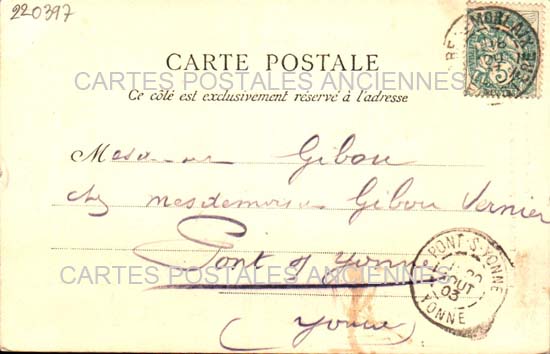 220397
MORLAIX
CARTE POSTALE
CARTES POSTALES ANCIENNES
Ce côté est exclusivement réservé à l'adresse
M Gibou
chez mesdemoiselles Gibou Vernier
Pont s/ Yonne
PONT-S-YONNE
AOUT
03
YONNE
CARTES POSTALES ANCIENNES
(Yonne)